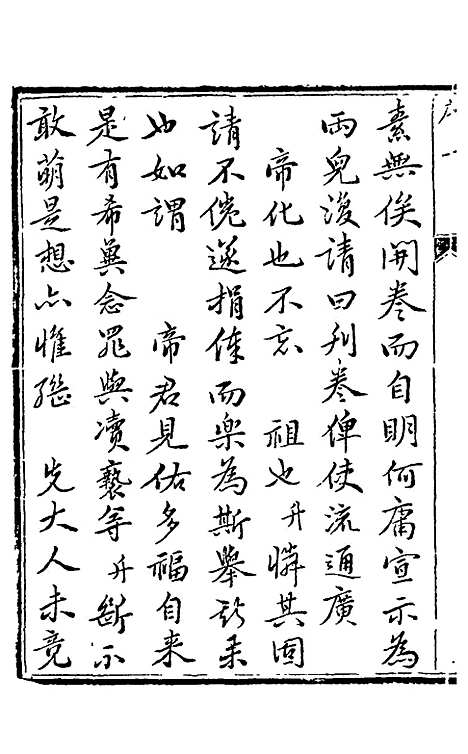 素無俟開卷而自明何庸宣示為
兩兒復請曰刋卷俾使流通廣
帝化也不忘　祖也升憐其固
請不倦遂捐俸而樂為斯舉
也如謂　帝君見佑多福自来
是有希兾念罪與凟褻等升斷不
敢萌是想亦惟　先大人未竟